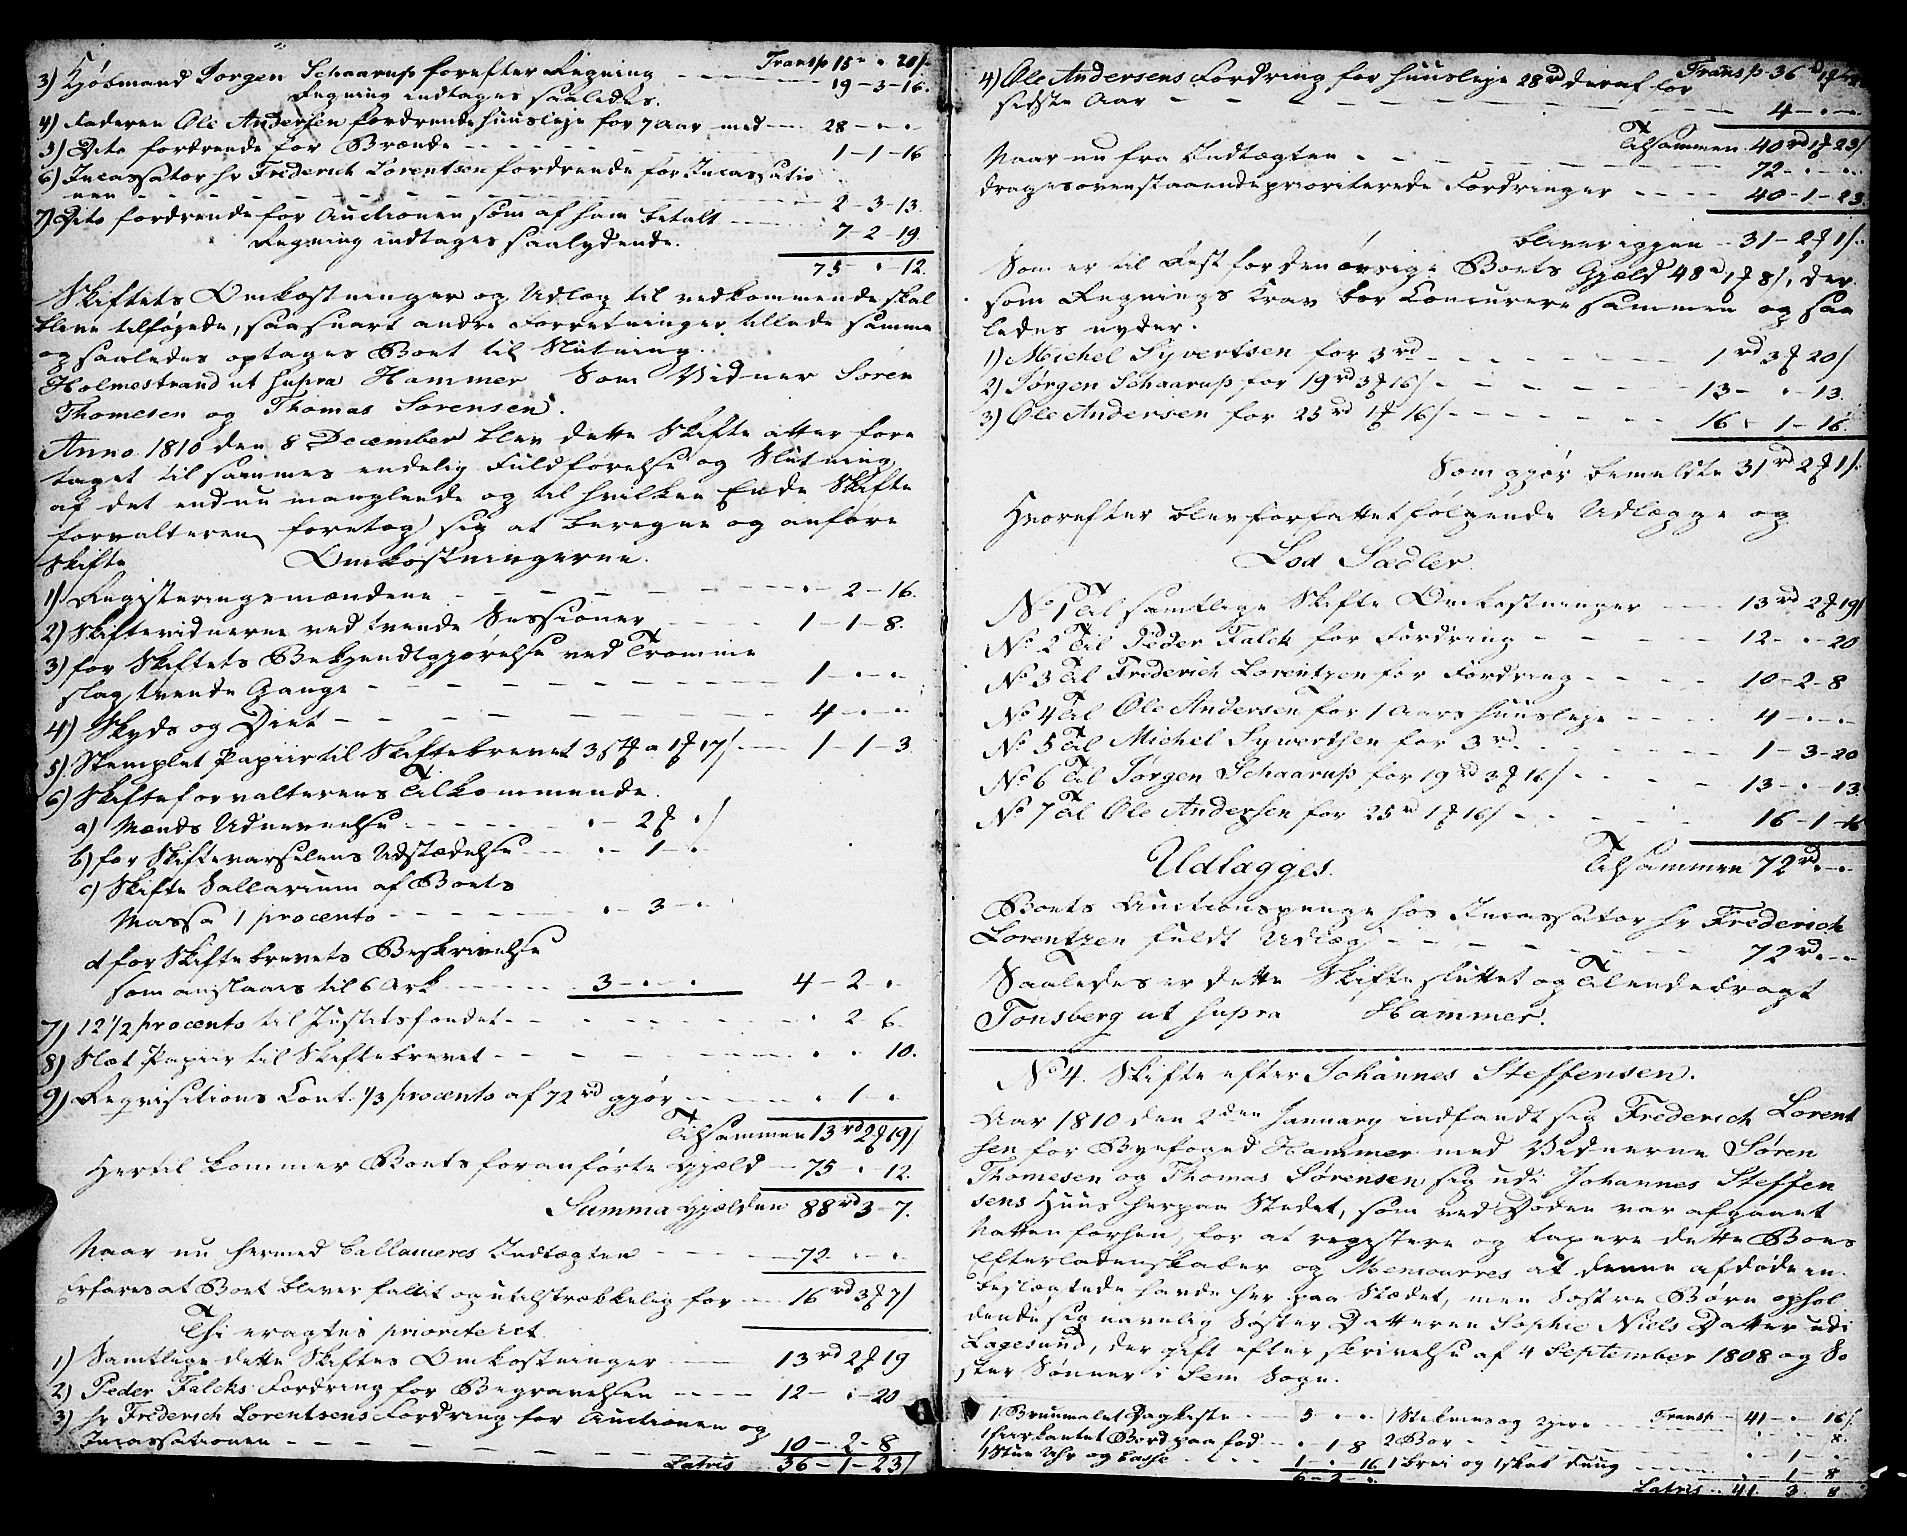 Transp 15 " " 20ß
3) Kjøbmand Jørgen Schaarup forefter Regning - - - - 19 - 3 - 16.
Regning indtages saaledes.
4) Faderen Ole Andersen fordrende Huusleje for 7 Aar med - - 28 - " - "
5) Dito fordrende for Brænde - - - - - 1 - 1 - 16
6) Incassator Hr Frederich Lorentsen fordrende for Incassatio
nen - - - - - - 2 - 3 - 13.
7) Dito fordrende for Auctionen som af ham betalt - - - 7 - 2 - 19.
Regning indtages saalydende.
75 - " - 12.
Skiftets Omkostninger og Udlæg til vedkommende skal
blive tilføyede, saasnart andre Forretninger tillade samme
og saaledes optages Boet til Slutning.
Holmestrand ut supra Hammer Som Vidner Søren
Thomesen og Thomas Sørensen.
Anno 1810 den 8 December blev dette Skifte atter fore
taget til sammes endelig Fuldførelse og Slutning
af det endnu manglende og til hvilken Ende Skifte
forvalteren foretog sig at beregne og anføre
Skifte Omkostningerne.
1) Registeringsmændene - - - - - " - 2 - 16.
2) Skiftevidnerne ved tvende Sessioner - - - 1 - 1 - 8.
3) for Skiftets Bekjendtgjørelse ved Tromme
slag tvende Gange - - - - - 1 - " - "
4) Skyds og Diet - - - - - - 4 - " - "
5) Stemplet Papiir til Skiftebrevet 3 a 1 17ß - - 1 - 1 - 3.
6) Skifteforvalterens Tilkommende.
a) Mænds Udnevnelse - - - - " - 2 "
b) for Skiftevarselens Udstædelse - - " - 1 - "
c) Skifte Sallarium af Boets
Massa 1 procento - - - - " - 3 - "
d for Skiftebrevets Beskrivelse
som anslaaes til 6 Ark - - - 3 - " - " 4 - 2 - "
7) 12 1/2 procento til Justitsfondet - - - - " 2 - 6.
8) Slet Papiir til Skiftebrevet - - - - " " 10.
9) Reqvisitions Cont. 1/3 procento af 72 rd gjør - - - " 1 - "
Tilsammen 13 rd 2 19ß
Hertil kommer Boets foranførte Gjæld - 75 - " 12.
Summa Gjælden 88 rd 3 - 7.
Naar nu hermed ballanceres Indtægten - - - 72 - " - "
Erfares at Boet bliver fallit og utilstrækkelig for - 16 rd 3 7ß
Thi eragtes prioriteret
1) Samtlige dette Skiftes Omkostninger - - 13 rd 2 19
2) Peder Falcks Fordring for Begravelsen - - - 12 - " - 20
3) Hr Frederich Lorentsens Fordring for Auctionen og
Incassationen - - - - - 10 - 2 - 8
Latris 36 - 1 - 23ß
Transp 36
4) Ole Andersens Fordring for Huusleje 28 rd deraf for
sidste Aar - - - - - - 4 - " - "
Tilsammen 40 rd 1 23ß
Naar nu fra Indtægten - - - - - 72 - " - "
drages ovenstaaende prioriterede Fordringer - - - 40 - 1 - 23.
bliver iggen - 31 - 2 1ß
Som er til Rest for den øvrige Boets Gjæld 48 rd 1 8ß, der
som Regnings Krav bør Concurere sammen og saa
ledes nyder.
1) Michel Syvertsen for 3 rd - - - - 1 rd 3 20ß
2) Jørgen Schaarup for 19 rd 3 16ß - - - 13 - " - 13.
3) Ole Andersen for 25 rd 1 16ß - - - - 16 - 1 - 16.
Som gjør bemeldte 31 rd 2 1ß
Hvorefter blev forfattet følgende Udlægge og
Lod Sædler.
No 1 Til samtlige Skifte Omkostninger - - 13 rd 2 19ß
No 2 Til Peder Falck for Fordring - - - - 12 - " - 20
No 3 Til Frederich Lorentzen for Fordring - - - 10 - 2 - 8
No 4 Til Ole Andersen for 1 Aars Huusleje - - - 4 - " - "
No 5 Til Michel Sywertsen for 3 rd - - - - 1 - 3 - 20
No 6 Til Jørgen Schaarup for 19 rd 3 16ß - - - 13 - " - 13.
No 7 Til Ole Andersen for 25 rd 1 16ß - - - 16 - 1 - 16
Udlagges. Tilsammen 72 rd " - "
Boets Auctionspenge hos Incassator Hr Frederich
Lorentzen fuldt Udlæg - - - - - 72 rd " - "
Saaledes er dette Skifte sluttet og Tilendebragt
Tonsberg ut supra Hammer.
No 4. Skifte efter Johannes Steffensen.
Aar 1810 den 2den January indfandt sig Frederich Lorent
sen for Byefoged Hammer med Vidnerne Søren
Thomesen og Thomas Sørensen sig udi Johannes Steffen
sens Huus herpaa Stedet, som ved Døden var afgaaet
Natten forhen, for at registere og taxere dette Boes
Efterladenskaber og Mencourres at denne afdøde in
beslægtede havde her paa Stædet, men Søstre Børn ophol
dende sig navnlig Søster Datteren Sophie Niels Datter udi
Lagesund, der gift efter skrivelse af 4 September 1808 og Sø
ster Sønner i Sem Sogn.
1 Bruunmalet Dagkiste - - 5 " " Transp - 41 - " - 16ß
1 fiirkantet Bord paa fod - " 1 8 2 - - - " " 8.
1 Stue Uhr og Casse - - - 1 - " 16 1 og 1 - - " - 1 - 8
6 - 2 - " Latris - 41 3 8